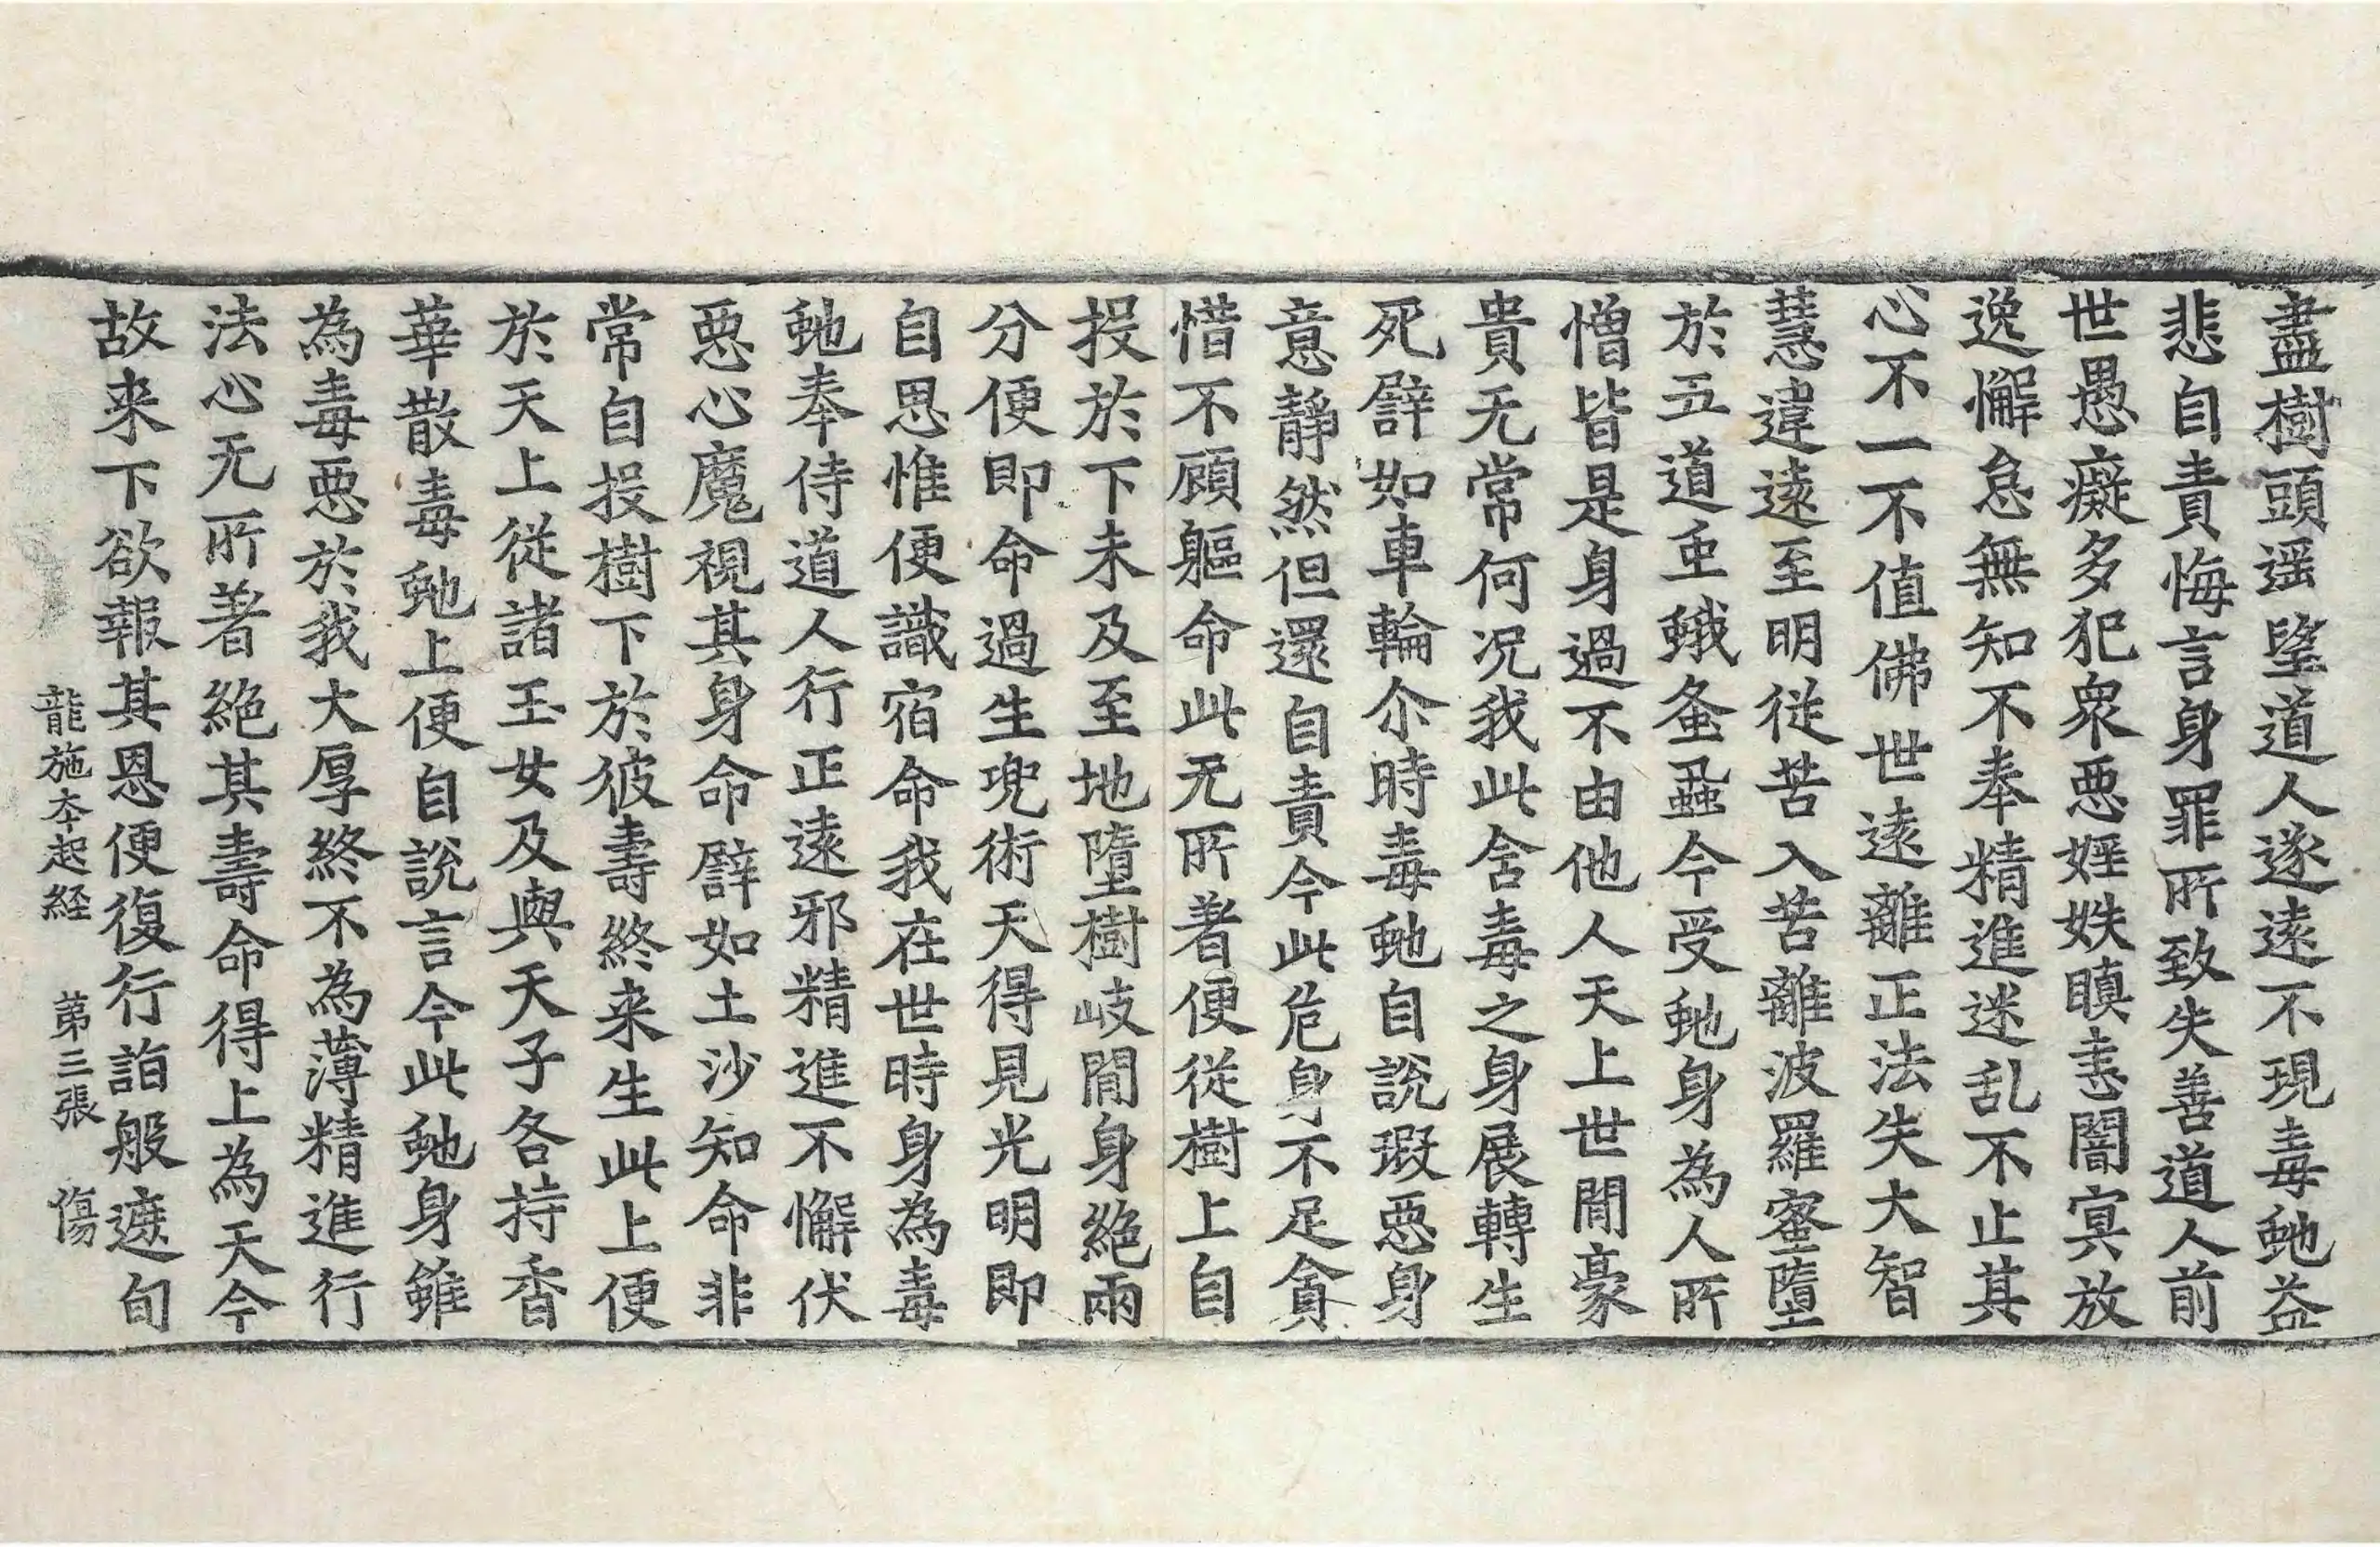 盡樹頭遥望道人遂遠不現毒虵益
悲自責悔言身罪所致失善道人前
世愚癡多犯衆惡婬妷瞋恚闇冥放
逸懈怠無知不奉精進迷乱不止其
心不一不值佛世遠離正法失大智
慧違遠至明従苦入苦離波羅蜜墮
於五道虫蛾蚤蝨今受虵身為人所
憎皆是身過不由他人天上世間豪
貴无常何况我此含毒之身展轉生
死譬如車輪尒時毒虵自說瑕惡身
意靜然但還自責今此危身不足貪
惜不顧軀命此无所著便従樹上自
投於下未及至地墮樹岐間身絶兩
分便即命過生兜術天得見光明即
自思惟便識宿命我在世時身為毒
虵奉侍道人行正遠邪精進不懈伏
惡心魔視其身命譬如土沙知命非
常自投樹下於彼壽終来生此上便
於天上従諸玉女及與天子各持香
華散毒虵上便自說言今此虵身雖
為毒惡於我大厚終不為薄精進行
法心无所著絶其壽命得上為天今
故来下欲報其恩便復行詣般遮旬
龍施夲起経　第三張　傷